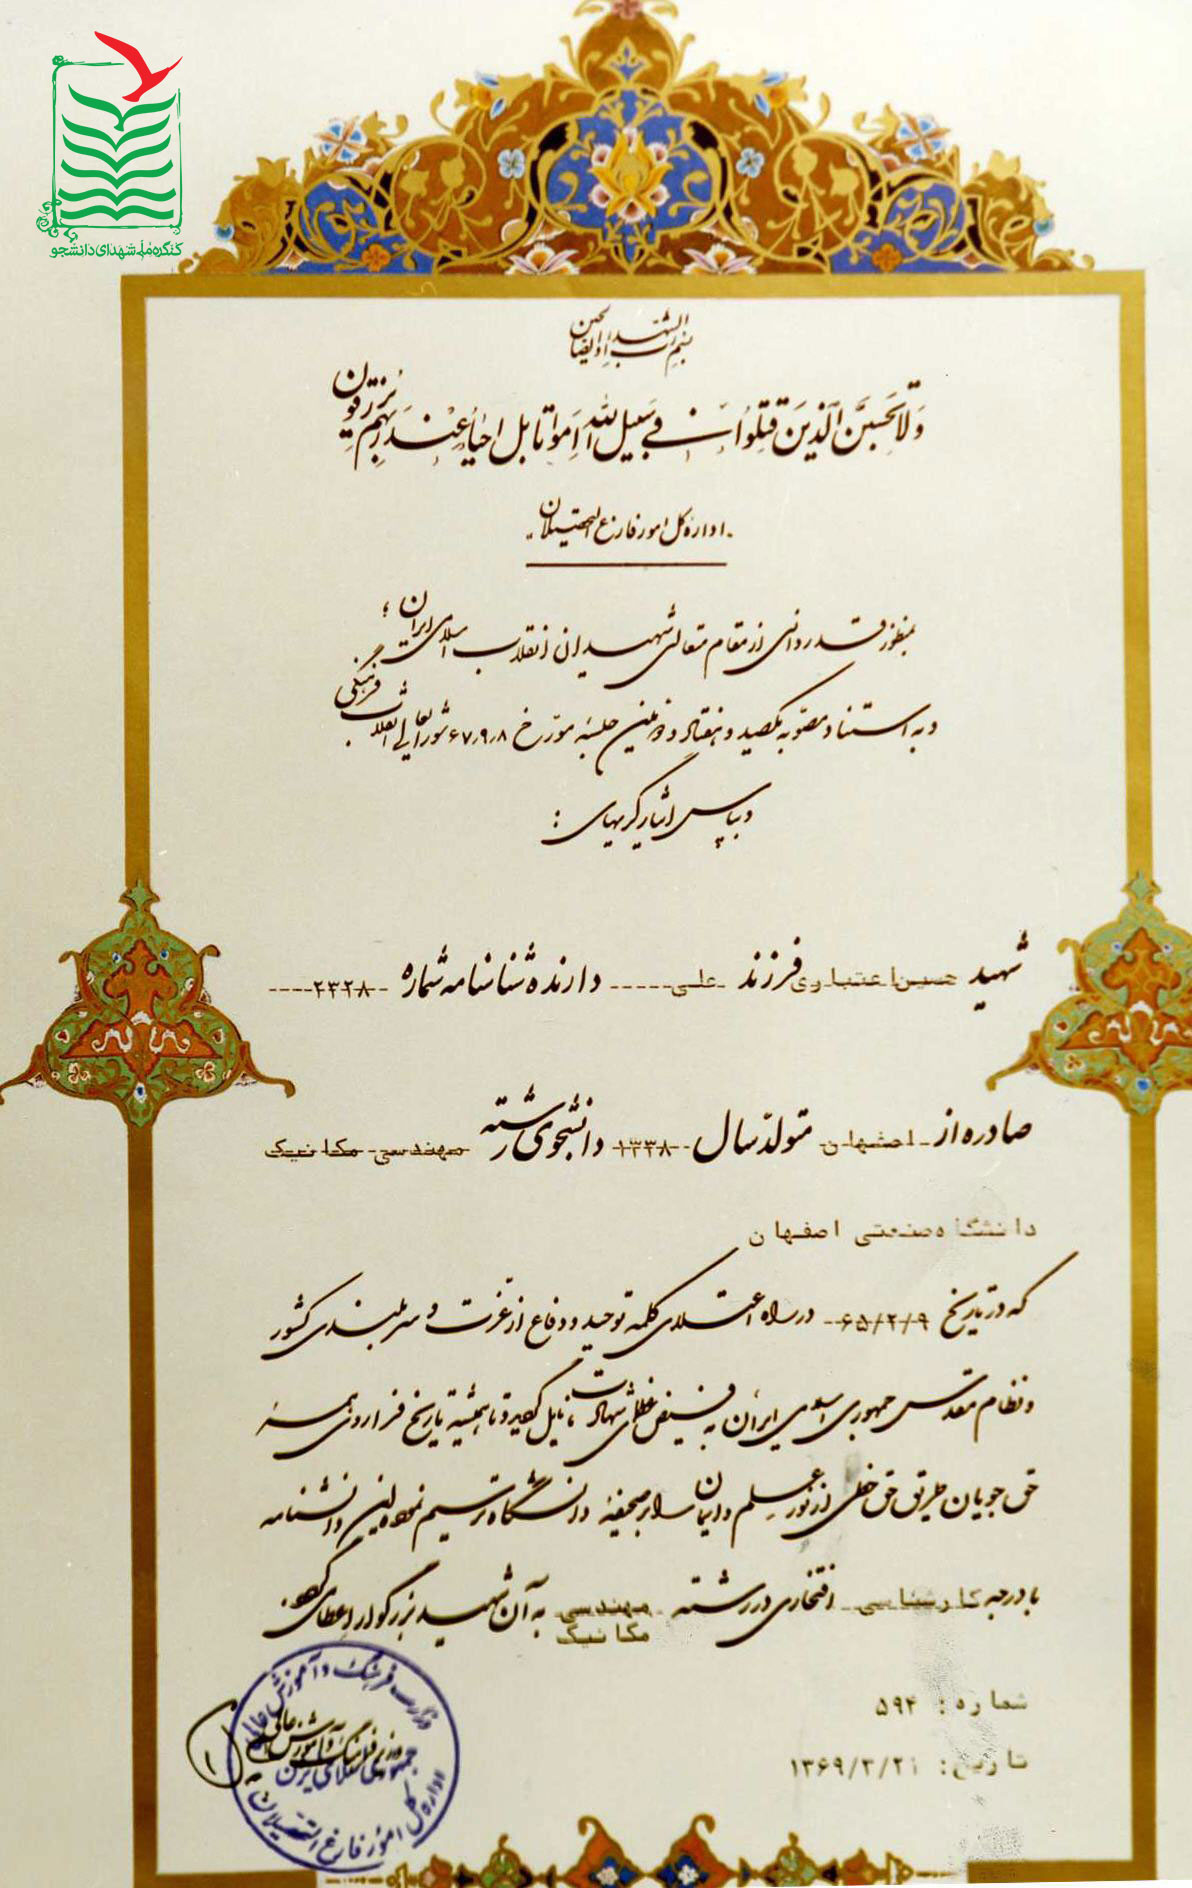 کنگره ملی شهدای دانشجو
بسم رب الشهداء والصالحین
وَلا تَحسَبَنَّ الَّذینَ قُتِلوا فی سَبیلِ اللهِ اَمواتا بَل احیاءٌ عِندَ رَبِّهِم یُرزَقون
اداره کل امور فارغ التحصیلان
بمنظور قدردانی از مقام متعالی شهیدان انقلاب اسلامی ایران ؛
و به استناد مصوبه یکصد و هفتاد و دومین جلسه مورخ ۶۷٫۹٫۸ شورایعالی انقلاب فرهنگی
و بپاس ایثارگریهای :
شهید حسین اعتباری فرزند علی دارنده شناسنامه شماره ۲۳۲۸
صادره از اصفهان متولد سال ۱۳۳۸ دانشجوی رشته مهندسی مکانیک
دانشگاه صنعتی اصفهان
که در تاریخ ۶۵/۲/۹ در راه اعتلای کلمه توحید و دفاع از عزت و سربلندی کشور
و نظام مقدس جمهوری اسلامی ایران به فیض عظمای شهادت نایل گردید و تا همیشه تاریخ فراروی همه
حق جویان طریق حق خطی از نور علم و ایمان را بر صحیفه دانشگاه ترسیم نموده این دانشنامه
با درجه کارشناسی افتخاری در رشته مهندسی مکانیک به آن شهید بزرگوار اعطا می گردد.
شماره : ۵۹۴
تاریخ : ۱۳۶۹/۳/۲۱
وزارت فرهنگ و آموزش عالی
وزیر فرهنگ و آموزش عالی
جمهوری اسلامی ایران
اداره کل امور فارغ التحصیلان